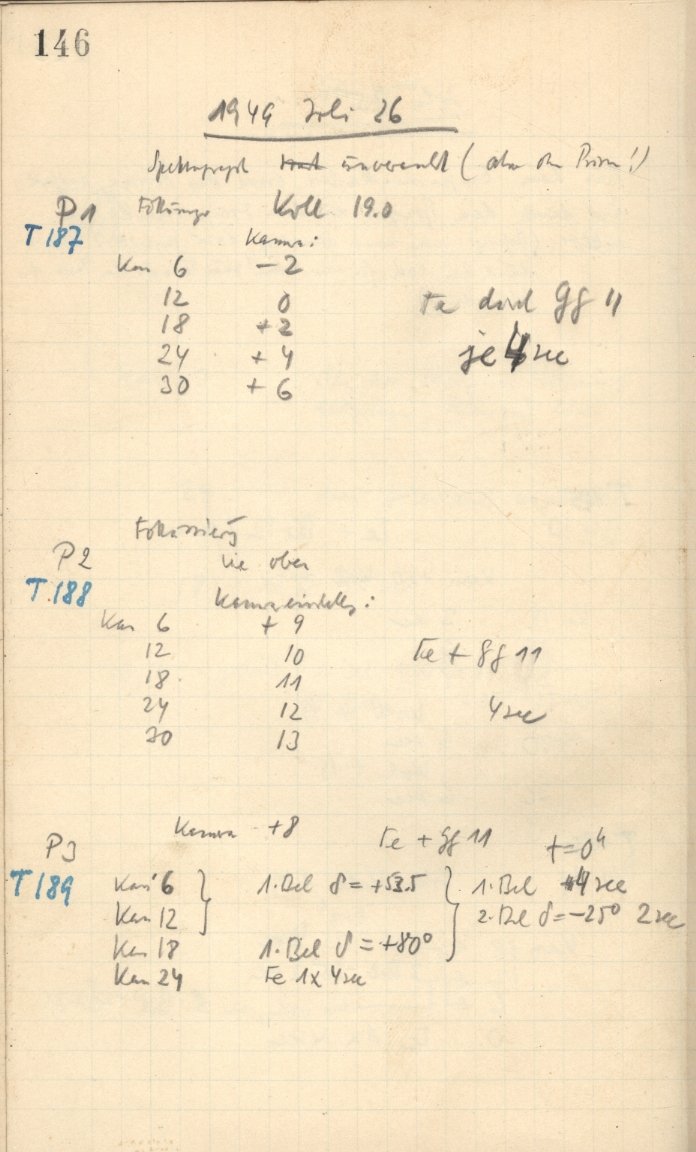 146
1949 Juli 26
Spektrograph unverändert (aber ohne Prisma!)
P1 Fokussierung Koll 19.0
T 187
Kamera:
Kas 6 -2
12 0
18 +2
24 +4
30 +6
Fe durch Gg 11
je 4 sec
Fokussierung
P2 wie oben
T.188
Kameraeinstellg:
Kas 6 +9
12 10
18 11
24 12
30 13
Fe + Gg 11
4 sec
Kamera +8 Fe + Gg 11 t=0h
P3
T 189
Kas 6 } 1. Bel δ = +53.5 } 1. Bel 4 sec
Kas 12 2. Bel δ = -25° 2 sec
Kas 18 1. Bel δ = +80°
Kas 24 Fe 1x 4 sec